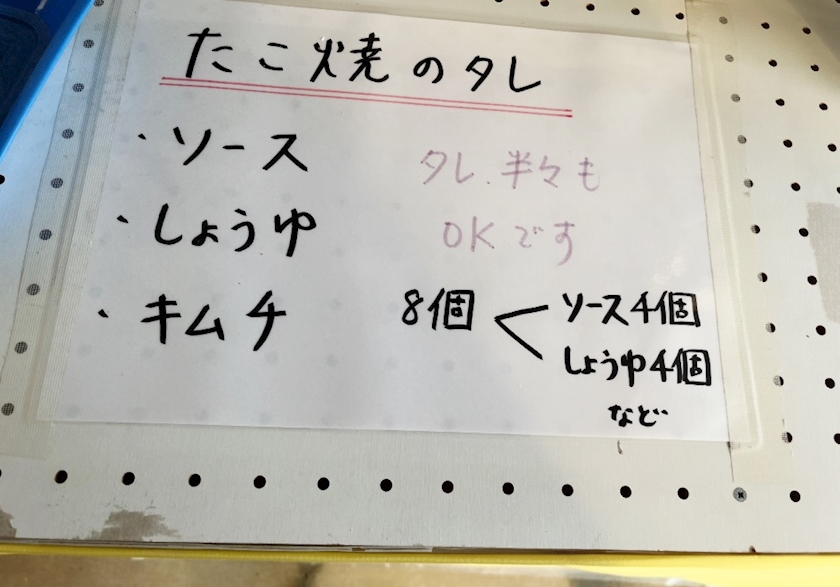 たこ焼のタレ
・ソース
・しょうゆ
・キムチ
タレ、半々も
OKです
8個<ソース4個
しょうゆ4個
など